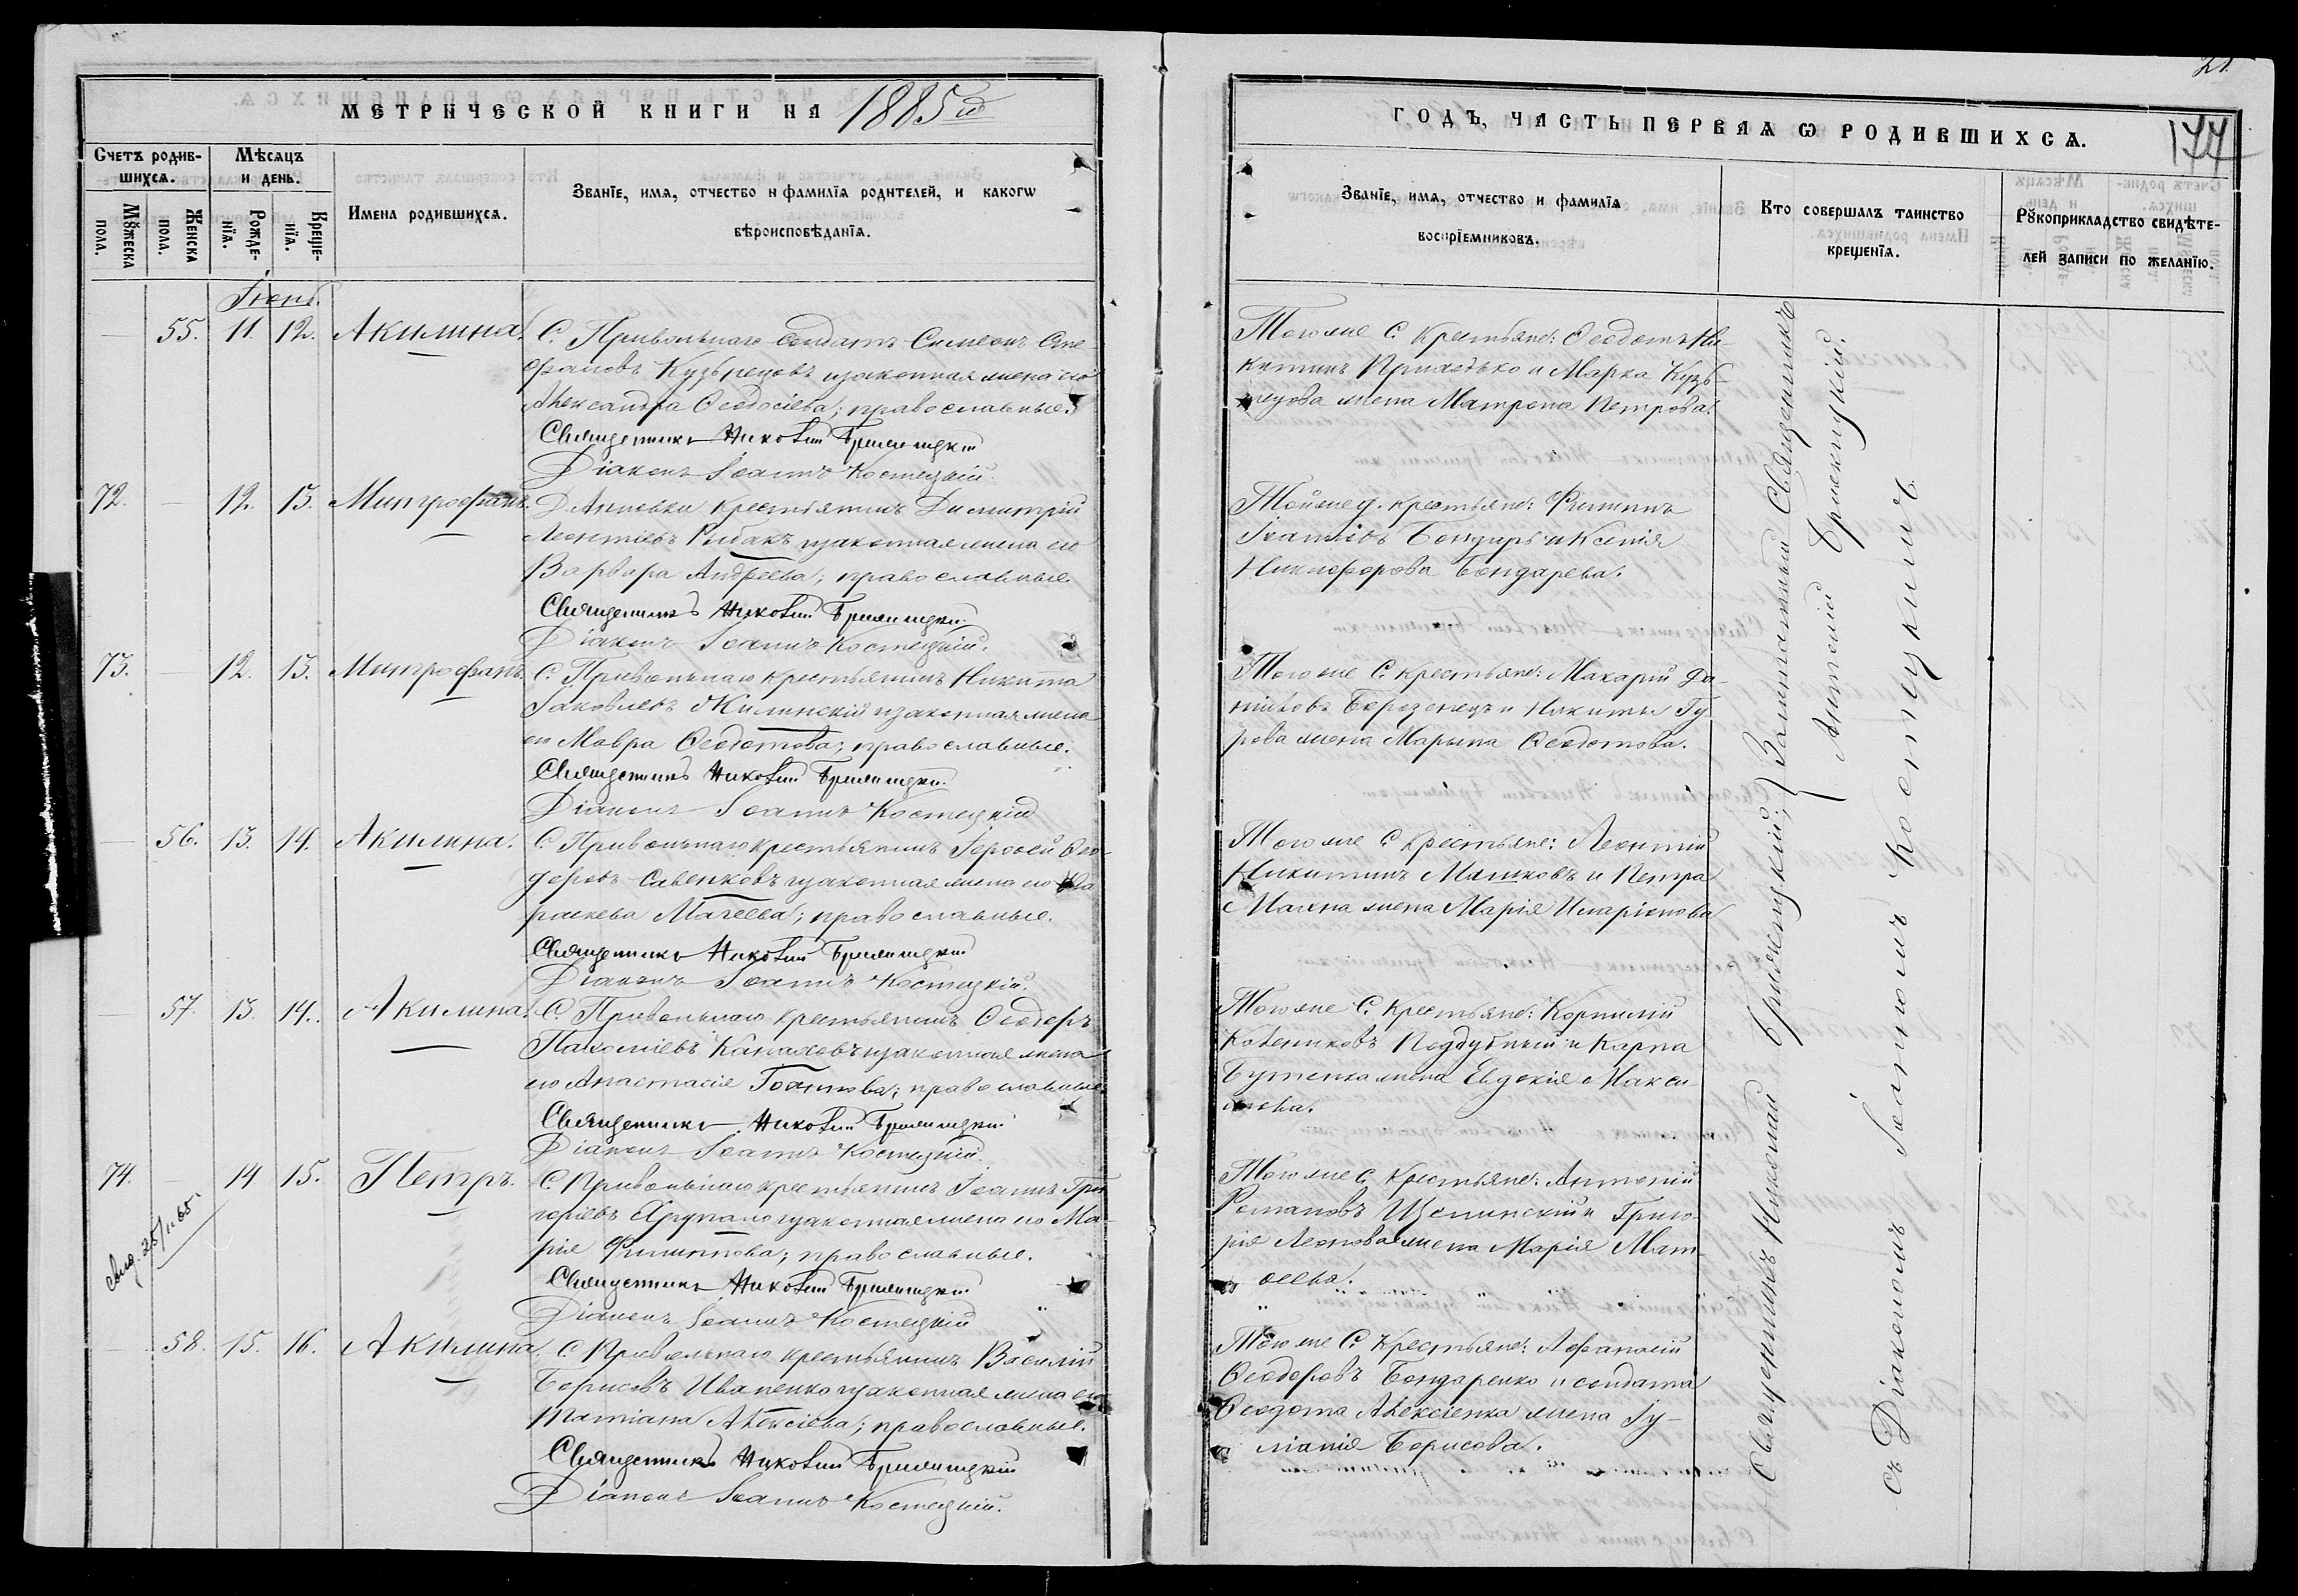 МЕТРИЧЕСКОЙ КНИГИ НА 1885й
Счетъ родившихсѧ.
Мѣсѧцъ и день.
Мꙋжеска пола.
Женска пола.
Рожденїѧ.
Крещенїѧ.
Имена родившихсѧ.
Званїе, имѧ, отчество и фамилїѧ родителей, и какогѡ
вѣроисповѣданїѧ.
Іюнь.
55. 11. 12. Акилина.
С. Привольнаго солдатъ Симеонъ Сте-
фановъ Кузьрецовъ изаконная жена его
Александра Ѳеодосіева; православные.
Священникъ Николай
Діаконъ Іоаннъ Костецкій.
72. 12. 13. Митрофанъ.
Д Анновки Крестьянинъ Димитрій
Леонтіевъ Рыбакъ изаконная жена его
Варвара Андреева; православные.
Священникъ Николай
Діаконъ Іоаннъ Костецкій.
73. 12. 13. Митрофанъ.
С. Привольнаго крестьянинъ Никита
Іаковлевъ Жилинскій изаконная жена
его Мавра Ѳеодотова; православные.
Священникъ Николай
Діаконъ Іоаннъ Костецкій
56. 13. 14. Акилина.
С. Привольнаго крестьянинъ Іероѳей Ѳео-
доровъ Савенковъ изаконная жена его Па
раскева Матѳеева; православные.
Священникъ Николай
Діаконъ Іоаннъ Костецкій.
57. 13. 14. Акилина.
С. Привольнаго крестьянинъ Ѳеодоръ
Пахоміевъ изаконная жена
его Анастасія Іоаннова; православные.
Священникъ Николай
Діаконъ Іоаннъ Костецкій.
74. 14 15. Петръ.
С. Привольнаго крестьянинъ Іоаннъ Гри
горіевъ изаконная жена его Ма-
рія Филиппова; православные.
Священникъ Николай
Діаконъ Іоаннъ Костецкій
58. 15. 16. Акилина
С. Привольнаго крестьянинъ Василій
Борисовъ Иваненко изаконная жена его
Татіана Алексіева; православные.
Священникъ Николай
Діаконъ Іоаннъ Костецкій.
21.
177
ГОДЪ, ЧАСТЬ ПЕРВАѦ Ѡ РОДИВШИХСѦ.
Званїе, имѧ, отчество и фамилїѧ
воспрїемниковъ.
Кто совершалъ таинство
крещенїѧ.
Рꙋкоприкладство свидѣте-
лей записи по желанїю.
Того же С. Крестьяне: Ѳеодотъ Ни-
китинъ Приходько и Марка Кузь-
рецова жена Матрона Петрова.
Той же д. крестьяне: Филиппъ
Іоанновъ Бондарь и Ксенія
Никифорова Бондарева.
Того же С. крестьяне: Макарій Да-
ніиловъ Березенецъ и Никиты Гу
рова жена Марина Ѳеодотова.
Того же С крестьяне: Леонтій
Никитинъ Машковъ и Петра
жена Марія Иларіонова
Того же С. Крестьяне: Корнилій
Поддубный и Карпа
Бутенка жена Евдокія Макси-
мова.
Того же С. Крестьяне: Антоній
Романовъ Щепинскій и Григо-
рія Леонова жена Марія Мат-
ѳеева.
Того же С. Крестьяне: Аѳанасій
Ѳеодоровъ Бондаренко и солдата
Ѳеодота Алексіенка жена Іу-
ліанія Борисова.
Священникъ Николай
Заштатный Священникъ
Антоній
съ Діакономъ Іоанномъ Костецкимъ.